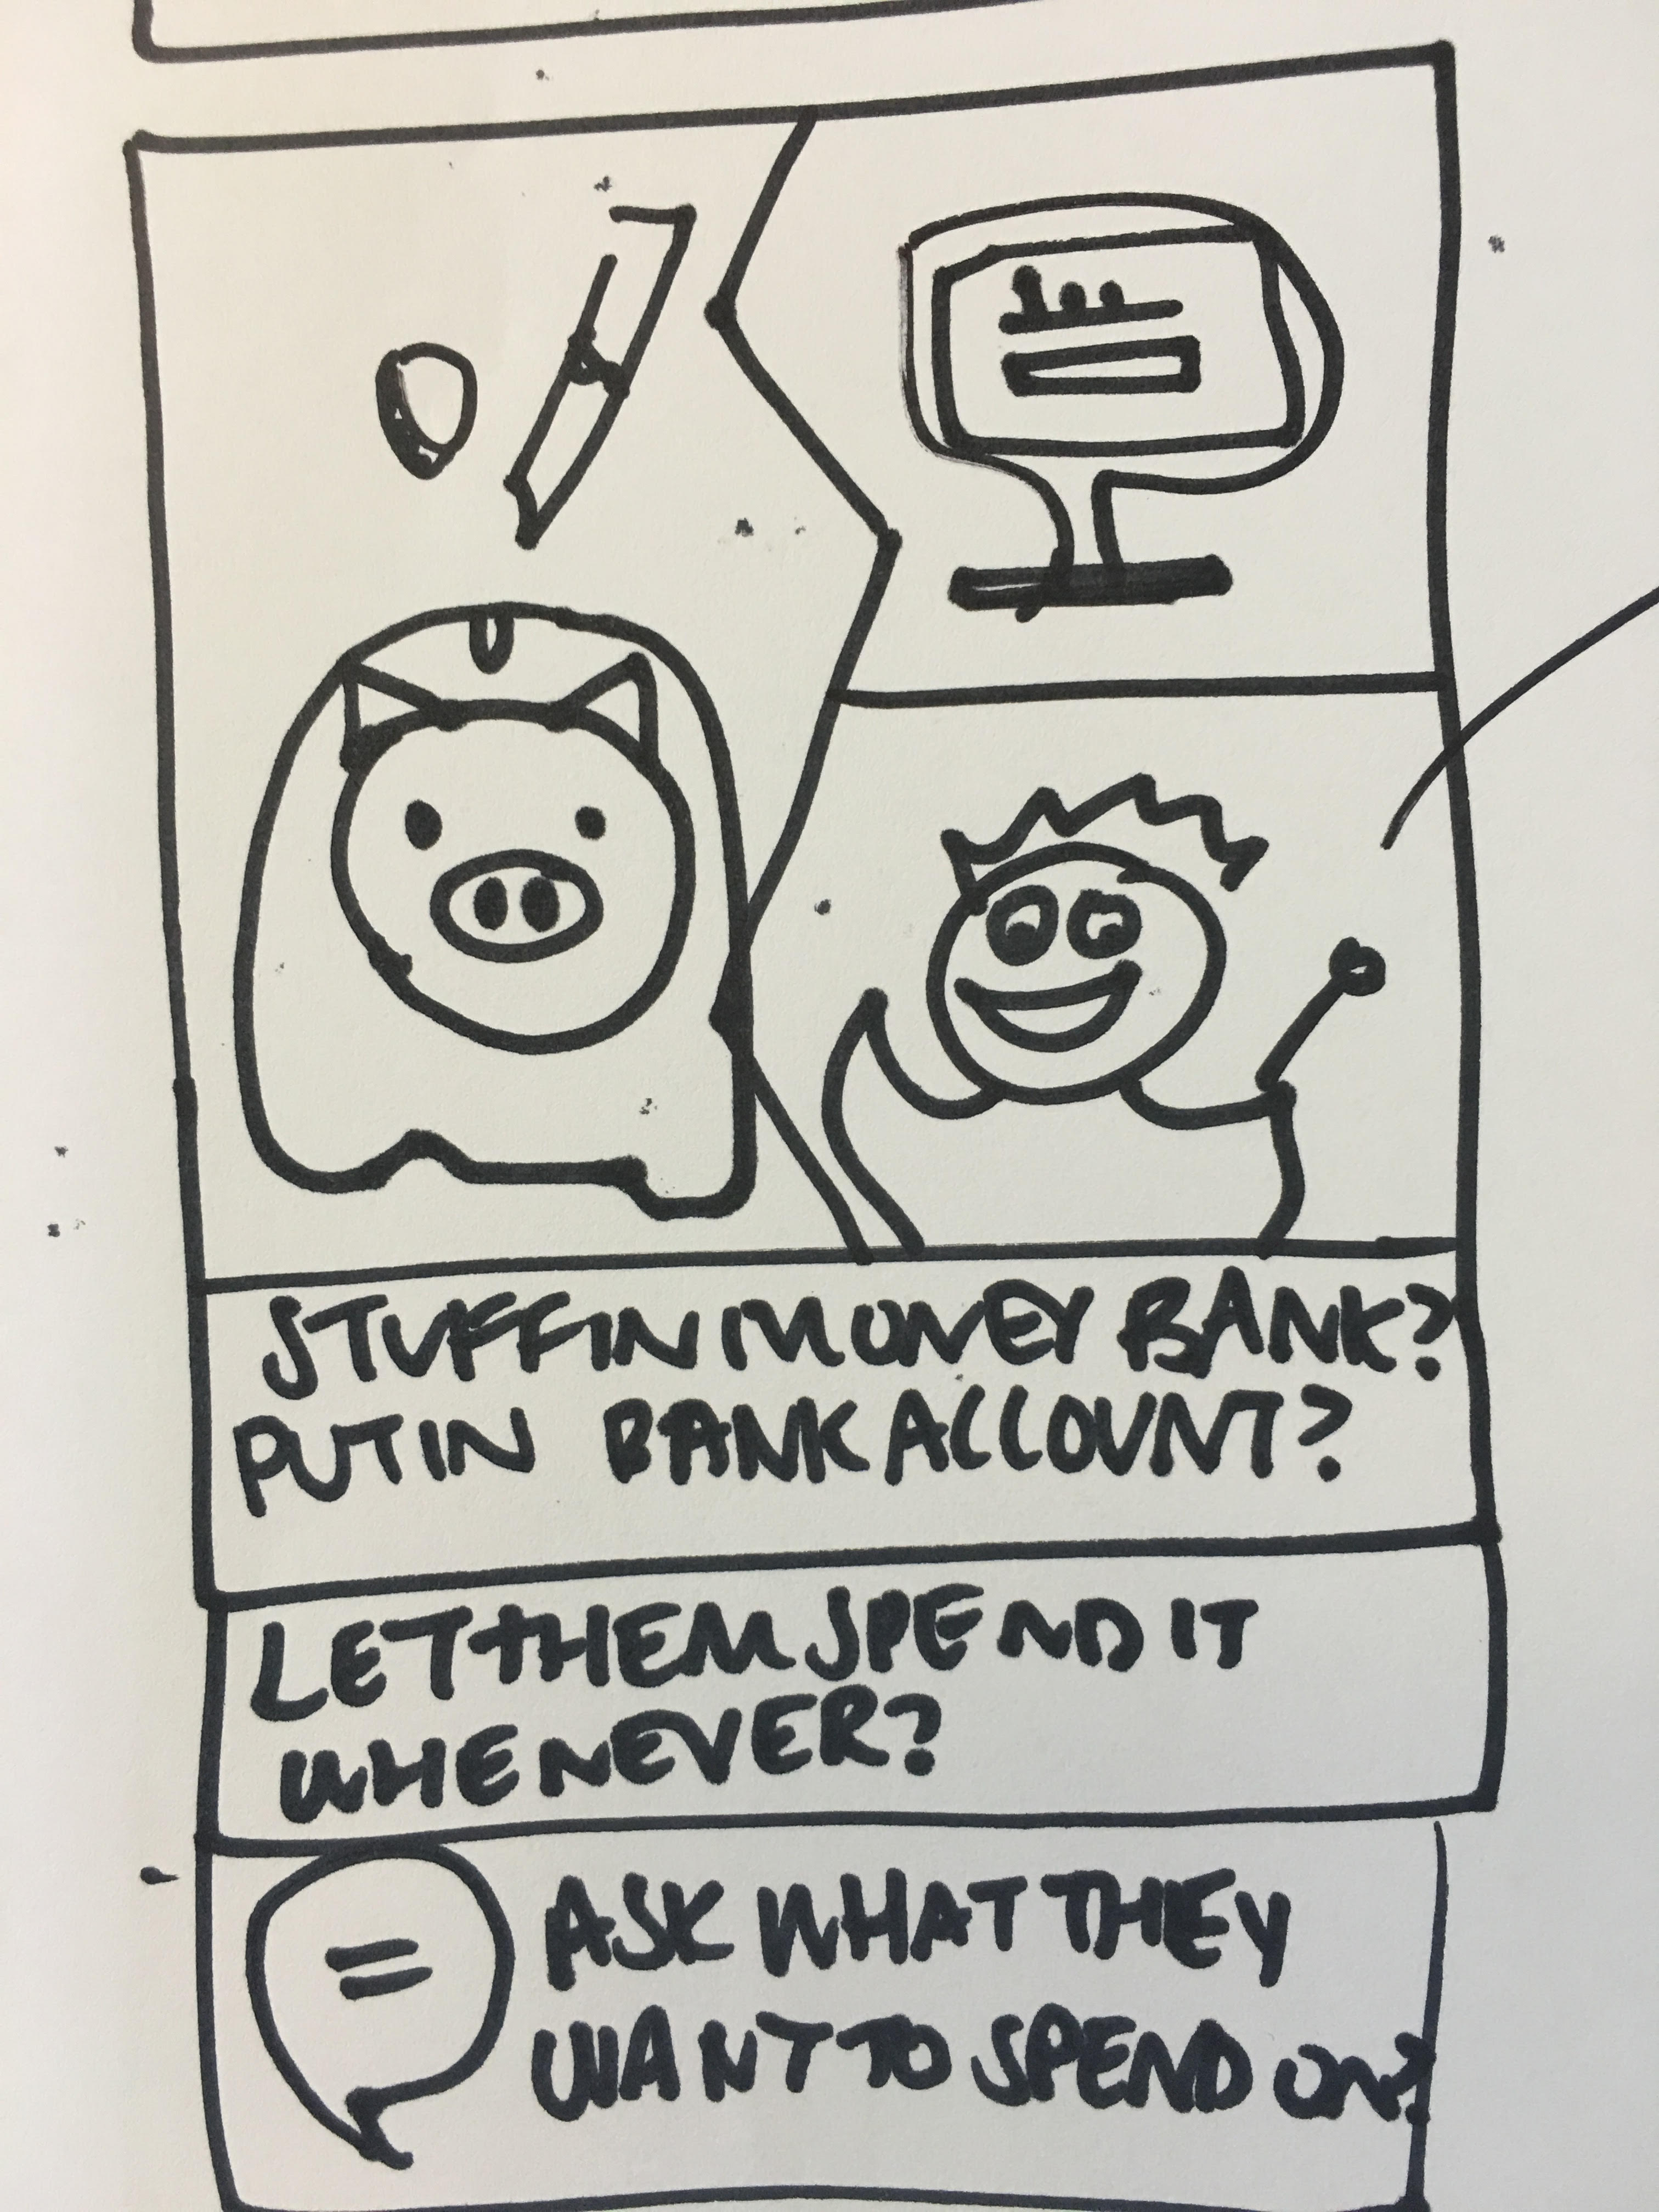 STUFF IN MONEY BANK?
PUT IN BANK ACCOUNT?
LET THEM SPEND IT
WHENEVER?
ASK WHAT THEY
WANT TO SPEND ON?